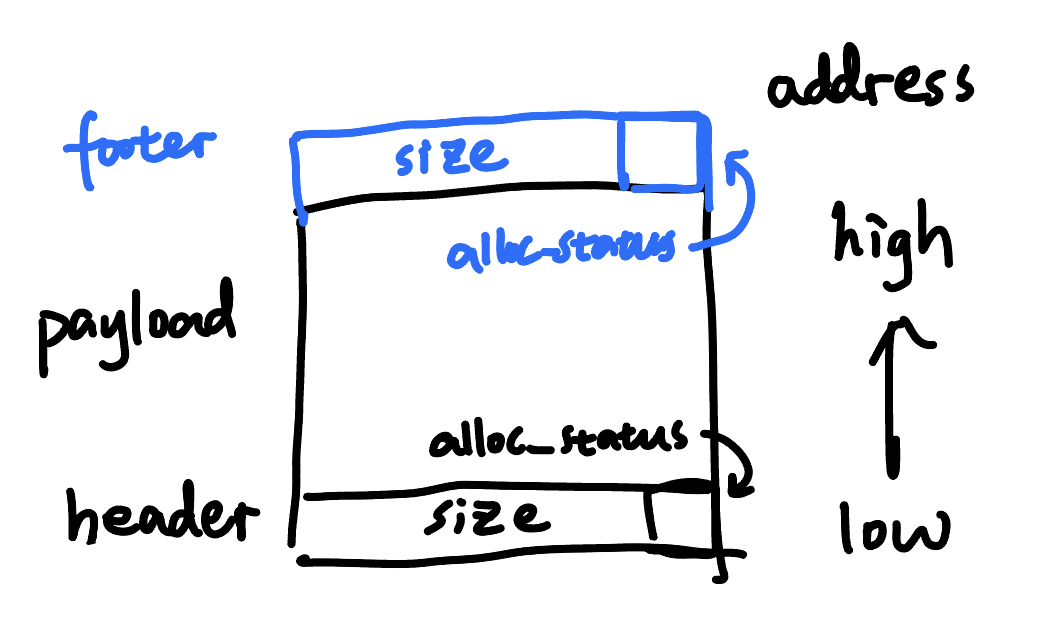 address
footer
size
alloc_status
high
payload
alloc_status
header
size
low